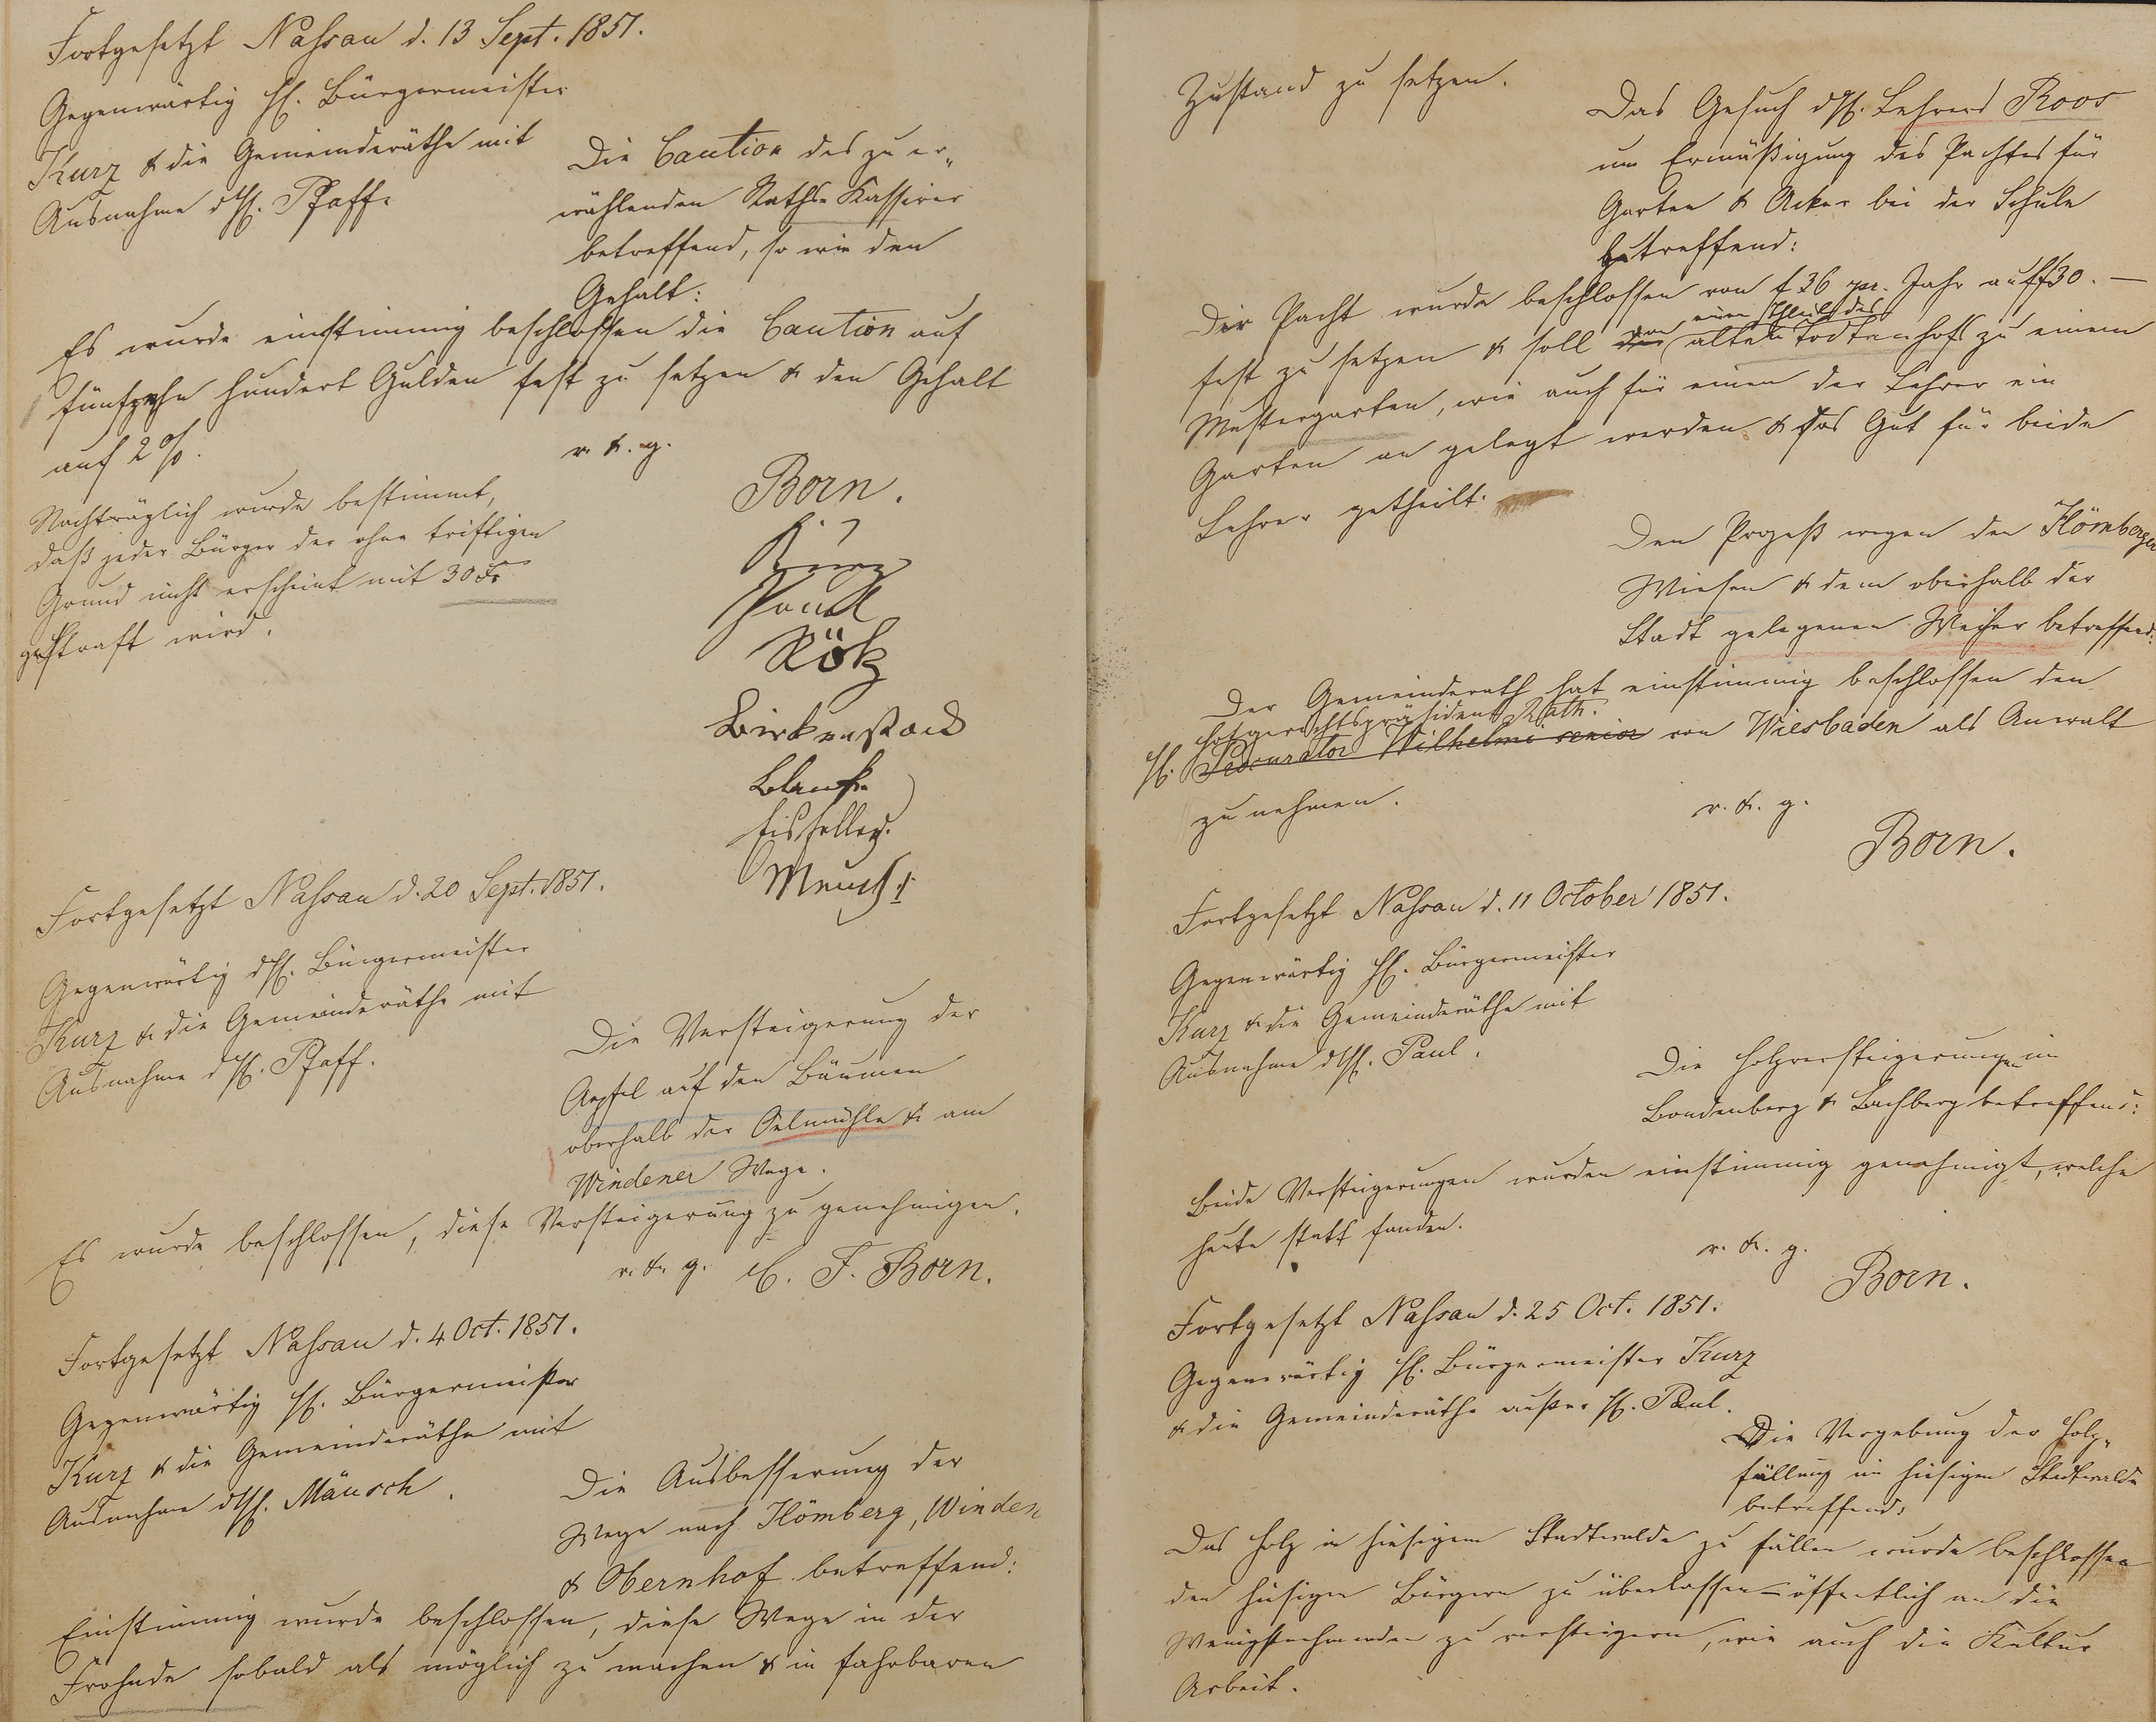 Fortgesetzt Nassau d. 13 Sept. 1851.
Gegenwärtig H. Bürgermeister
Kurz & die Gemeinderäthe mit
Ausnahme d H. Pfaff.
Die Caution des zu er„
wählenden Raths-Kassirer
betreffend, so wie den
Gehalt:
Es wurde einstimmig beschlossen die Caution auf
fünfzehn hundert Gulden fest zu setzen & den Gehalt
auf 2 %.
v. & g.
Nachträglich wurde bestimmt,
daß jeder Bürger der ohne triftigen
Grund nicht erscheint mit 30
gestraft wird.
Born.
Kurz
Paul
Rötz
Birkenstock
Eisfeller.
Fortgesetzt Nassau d. 20 Sept. 1851.
Gegenwärtig d H. Bürgermeister
Kurz & die Gemeinderäthe mit
Ausnahme d H. Pfaff.
Die Versteigerung der
Aepfel auf den Bäumen
oberhalb der Oelmühle & am
Windener Wege.
Es wurde beschlossen, diese Versteigerung zu genehmigen.
v. & g. C. F. Born.
Fortgesetzt Nassau d. 4 Oct. 1851.
Gegenwärtig H. Bürgermeister
Kurz & die Gemeinderäthe mit
Ausnahme d H. Mäusch.
Die Ausbesserung der
Wege nach Hömberg, Winden
& Obernhof betreffend:
Einstimmig wurde beschlossen, diese Wege in der
Frohnde sobald als möglich zu machen & in fahrbaren
Zustand zu setzen.
Das Gesuch d H. Lehrers Roos
um Ermäßigung des Pachtes für
Garten & Acker bei der Schule
betreffend:
Der Pacht wurde beschlossen von f 36 pr. Jahr auf f 30. —
von einem Theil des
fest zu setzen & soll der alten Todtenhofs zu einem
Mustergarten, wie auch für einen der Lehrer ein
Garten an gelegt werden & das Gut für beide
Lehrer getheilt.
Den Prozeß wegen den Hömberger
Wiesen & dem oberhalb der
Stadt gelegenen Weiher betreffend:
Der Gemeinderath hat einstimmig beschlossen den
Hofgerichtspräsident Rath.
H. Procurator Wilhelmi senior von Wiesbaden als Anwalt
zu nehmen.
v. & g.
Born.
Fortgesetzt Nassau d. 11 October 1851.
Gegenwärtig H. Bürgermeister
Kurz & die Gemeinderäthe mit
Ausnahme d H. Paul.
Die Holzversteigerungen im
Bondenberg & Bachberg betreffend:
Beide Versteigerungen wurden einstimmig genehmigt, welche
heute statt fanden.
v. & g.
Born.
Fortgesetzt Nassau d. 25 Oct. 1851.
Gegenwärtig H. Bürgermeister Kurz
& die Gemeinderäthe außer H. Paul.
Die Vergebung der Holz„
fällung im hiesigen Stadtwalde
betreffend:
Das Holz in hiesigem Stadtwalde zu fällen wurde beschlossen
den hiesigen Bürgern zu überlassen = öffentlich an die
Wenigstnehmenden zu versteigern, wie auch die Kultur
Arbeit.